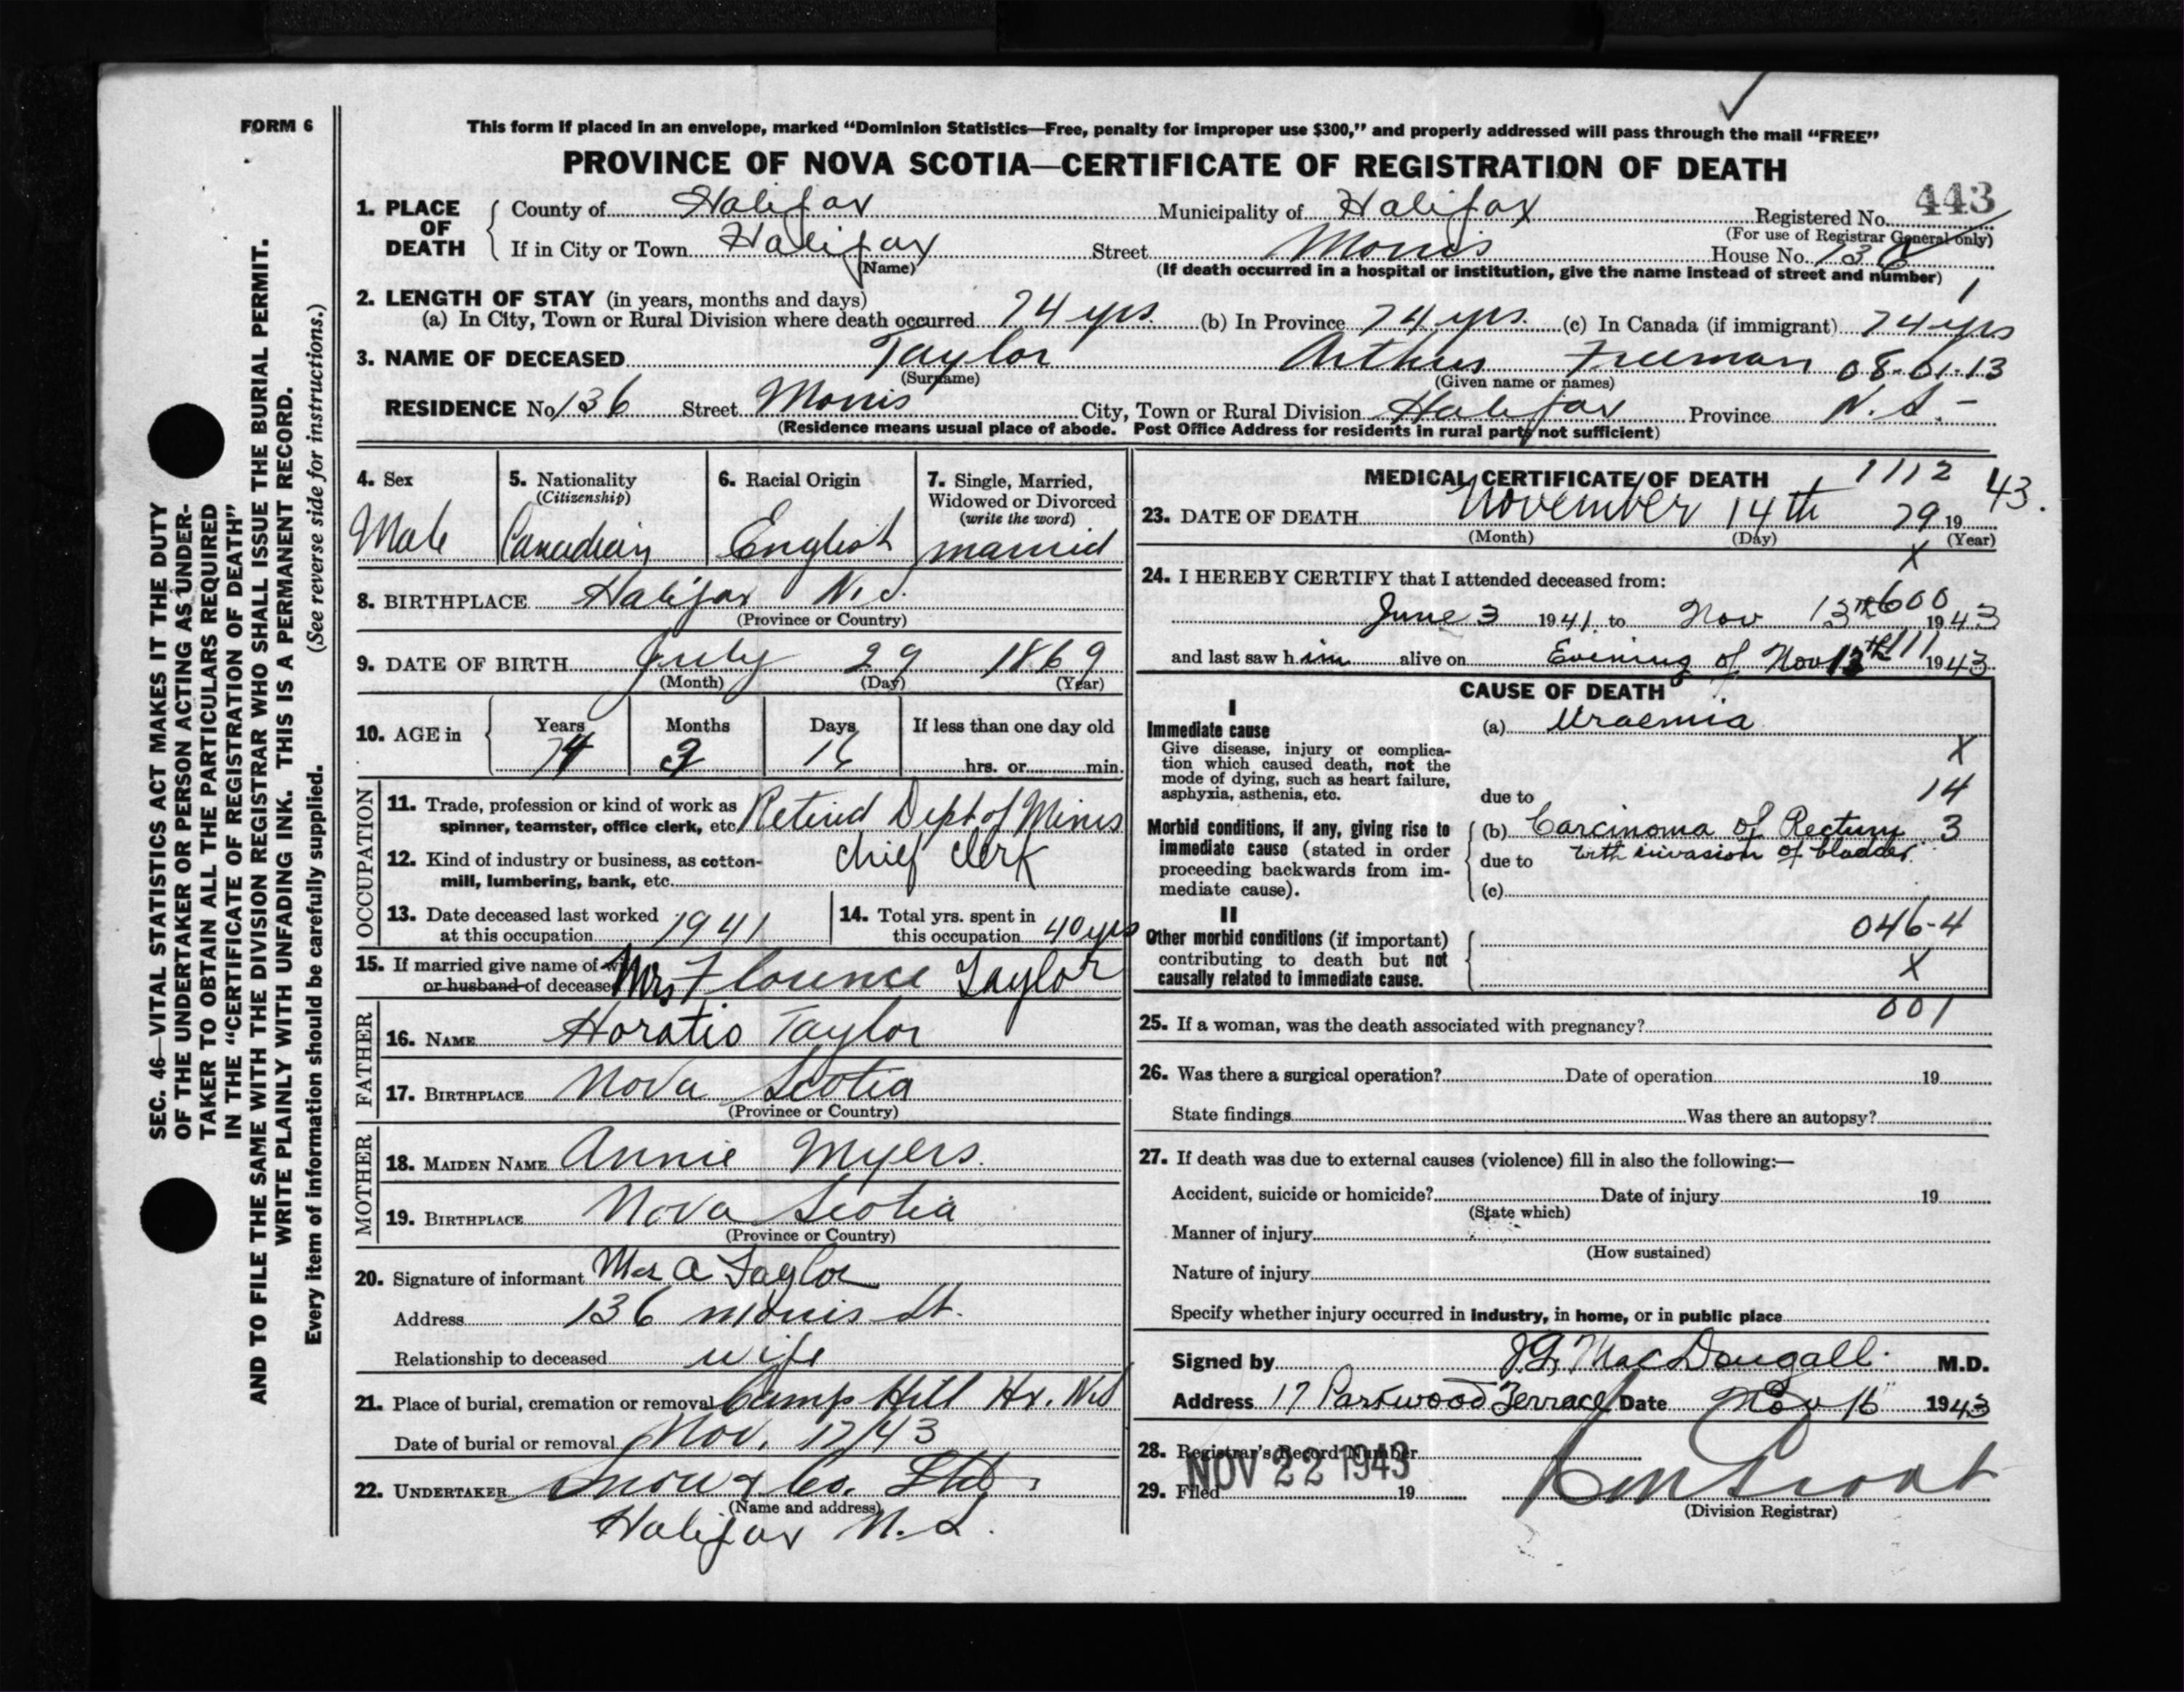 FORM 6
This form if placed in an envelope, marked “Dominion Statistics—Free, penalty for improper use $300,” and properly addressed will pass through the mail “FREE”
PROVINCE OF NOVA SCOTIA—CERTIFICATE OF REGISTRATION OF DEATH
443
1. PLACE OF DEATH { County of Halifax Municipality of Halifax Registered No.
(For use of Registrar General only)
If in City or Town Halifax Street Morris House No. 136
(Name)
(If death occurred in a hospital or institution, give the name instead of street and number)
1
2. LENGTH OF STAY (in years, months and days)
(a) In City, Town or Rural Division where death occurred 74 yrs. (b) In Province 74 yrs. (c) In Canada (if immigrant) 74 yrs
3. NAME OF DECEASED Taylor Arthur Freeman 08-01-13
(Surname) (Given name or names)
RESIDENCE No 136 Street Morris City, Town or Rural Division Halifax Province N.S.-
(Residence means usual place of abode. Post Office Address for residents in rural parts not sufficient)
4. Sex
Male
5. Nationality
(Citizenship)
Canadian
6. Racial Origin
English
7. Single, Married,
Widowed or Divorced
(write the word)
married
8. BIRTHPLACE Halifax N.S.
(Province or Country)
9. DATE OF BIRTH July 29 1869
(Month) (Day) (Year)
10. AGE in { Years Months Days If less than one day old
74 16 hrs. or min.
OCCUPATION
11. Trade, profession or kind of work as
spinner, teamster, office clerk, etc Retired Dept of Mines
12. Kind of industry or business, as cotton-
mill, lumbering, bank, etc. chief clerk
13. Date deceased last worked
at this occupation 1941
14. Total yrs. spent in
this occupation 40 yrs
15. If married give name of wife
or husband of deceased Mrs Florence Taylor
FATHER
16. NAME Horatio Taylor
17. BIRTHPLACE Nova Scotia
(Province or Country)
MOTHER
18. MAIDEN NAME Annie Myers.
19. BIRTHPLACE Nova Scotia
(Province or Country)
20. Signature of informant Mrs A Taylor
Address 136 Morris St.
Relationship to deceased wife
21. Place of burial, cremation or removal Camp Hill Hx. N.S
Date of burial or removal Nov. 17/43
22. UNDERTAKER Snow & Co. Ltd
(Name and address)
Halifax N.S.
MEDICAL CERTIFICATE OF DEATH 1112
23. DATE OF DEATH November 14th 29 19 43.
(Month) (Day) (Year)
X
24. I HEREBY CERTIFY that I attended deceased from:
600
June 3 1941. to Nov 13th 1943
111
and last saw h im alive on Evening of Nov 13th 1943
CAUSE OF DEATH
I
Immediate cause
Give disease, injury or complica-
tion which caused death, not the
mode of dying, such as heart failure,
asphyxia, asthenia, etc.
(a) Uraemia
X
due to 14
Morbid conditions, if any, giving rise to
immediate cause (stated in order
proceeding backwards from im-
mediate cause).
(b) Carcinoma of Rectum 3
due to with invasion of bladder.
(c)
II
Other morbid conditions (if important)
contributing to death but not
causally related to immediate cause.
046-4
X
001
25. If a woman, was the death associated with pregnancy?
26. Was there a surgical operation? Date of operation 19
State findings Was there an autopsy?
27. If death was due to external causes (violence) fill in also the following:—
Accident, suicide or homicide? Date of injury 19
(State which)
Manner of injury
(How sustained)
Nature of injury
Specify whether injury occurred in industry, in home, or in public place
Signed by J.G. MacDougall. M.D.
Address 17 Parkwood Terrace Date Nov 16 1943
28. Registrar's Record Number
NOV 22 1943
29. Filed 19
(Division Registrar)
SEC. 46—VITAL STATISTICS ACT MAKES IT THE DUTY
OF THE UNDERTAKER OR PERSON ACTING AS UNDER-
TAKER TO OBTAIN ALL THE PARTICULARS REQUIRED
IN THE “CERTIFICATE OF REGISTRATION OF DEATH”
AND TO FILE THE SAME WITH THE DIVISION REGISTRAR WHO SHALL ISSUE THE BURIAL PERMIT.
WRITE PLAINLY WITH UNFADING INK. THIS IS A PERMANENT RECORD.
Every item of information should be carefully supplied. (See reverse side for instructions.)